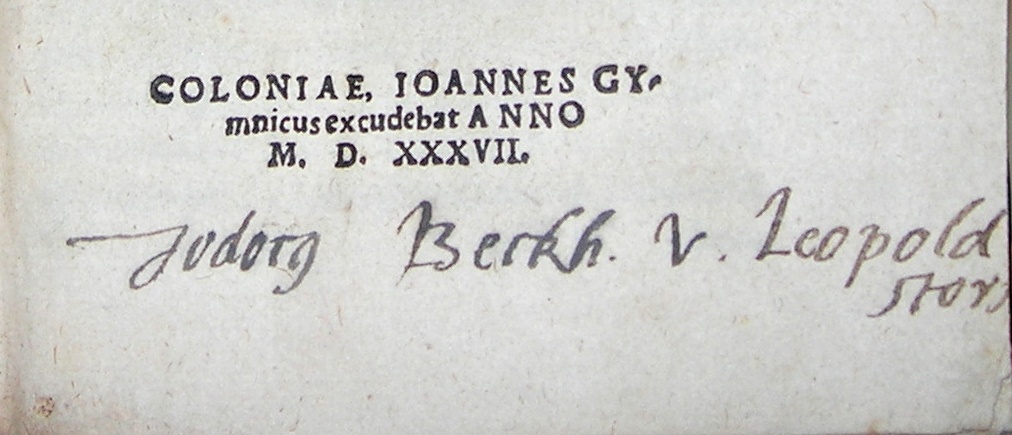 COLONIAE, IOANNES GY-
mnicus excudebat ANNO
M. D. XXXVII.
Beckh. V. Leopold
storf